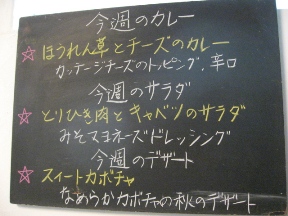 今週のカレー
☆ ほうれん草とチーズのカレー
カッテージチーズのトッピング、辛口
今週のサラダ
☆ とりひき肉とキャベツのサラダ
みそマヨネーズドレッシング
今週のデザート
☆ スイートカボチャ
なめらかカボチャの秋のデザート